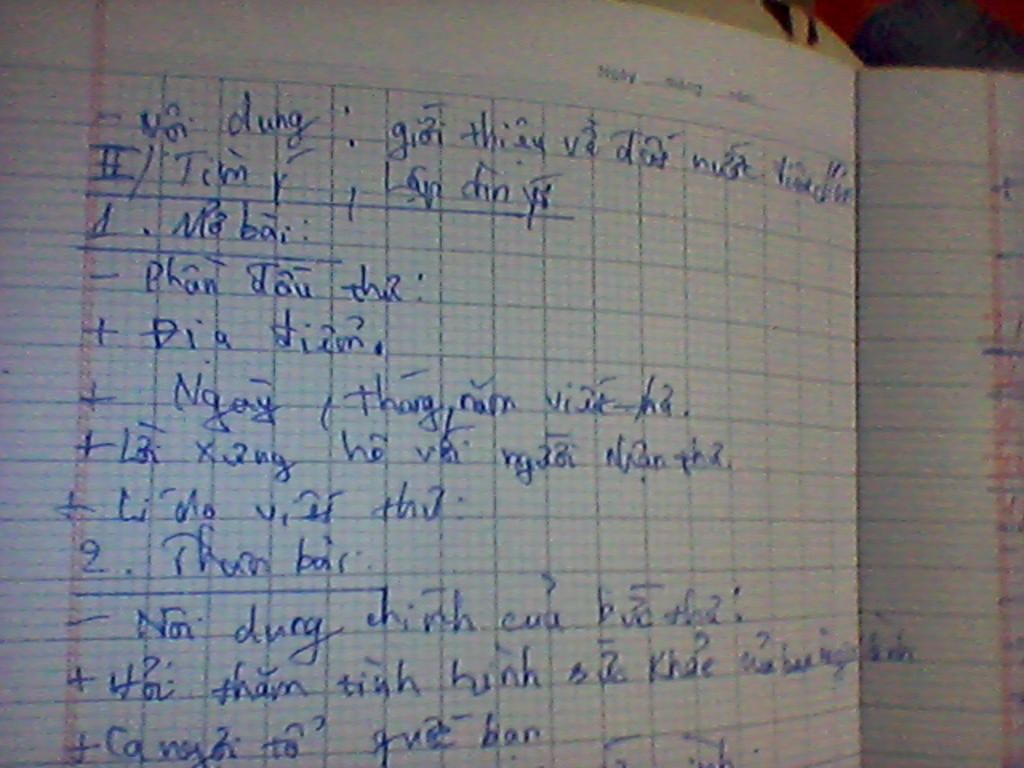 Ngày tháng năm
- Nội dung : giới thiệu về đất nước
II/ Tìm ý , Lập dàn ý
1. Mở bài:
- Phần đầu thư:
+ Địa điểm.
+ Ngày, tháng, năm viết thư.
+ Lời xưng hô với người nhận thư.
+ Lí do viết thư:
2. Thân bài:
- Nội dung chính của bức thư:
+ Hỏi thăm tình hình sức khỏe
+ Ca ngợi tổ quốc bạn